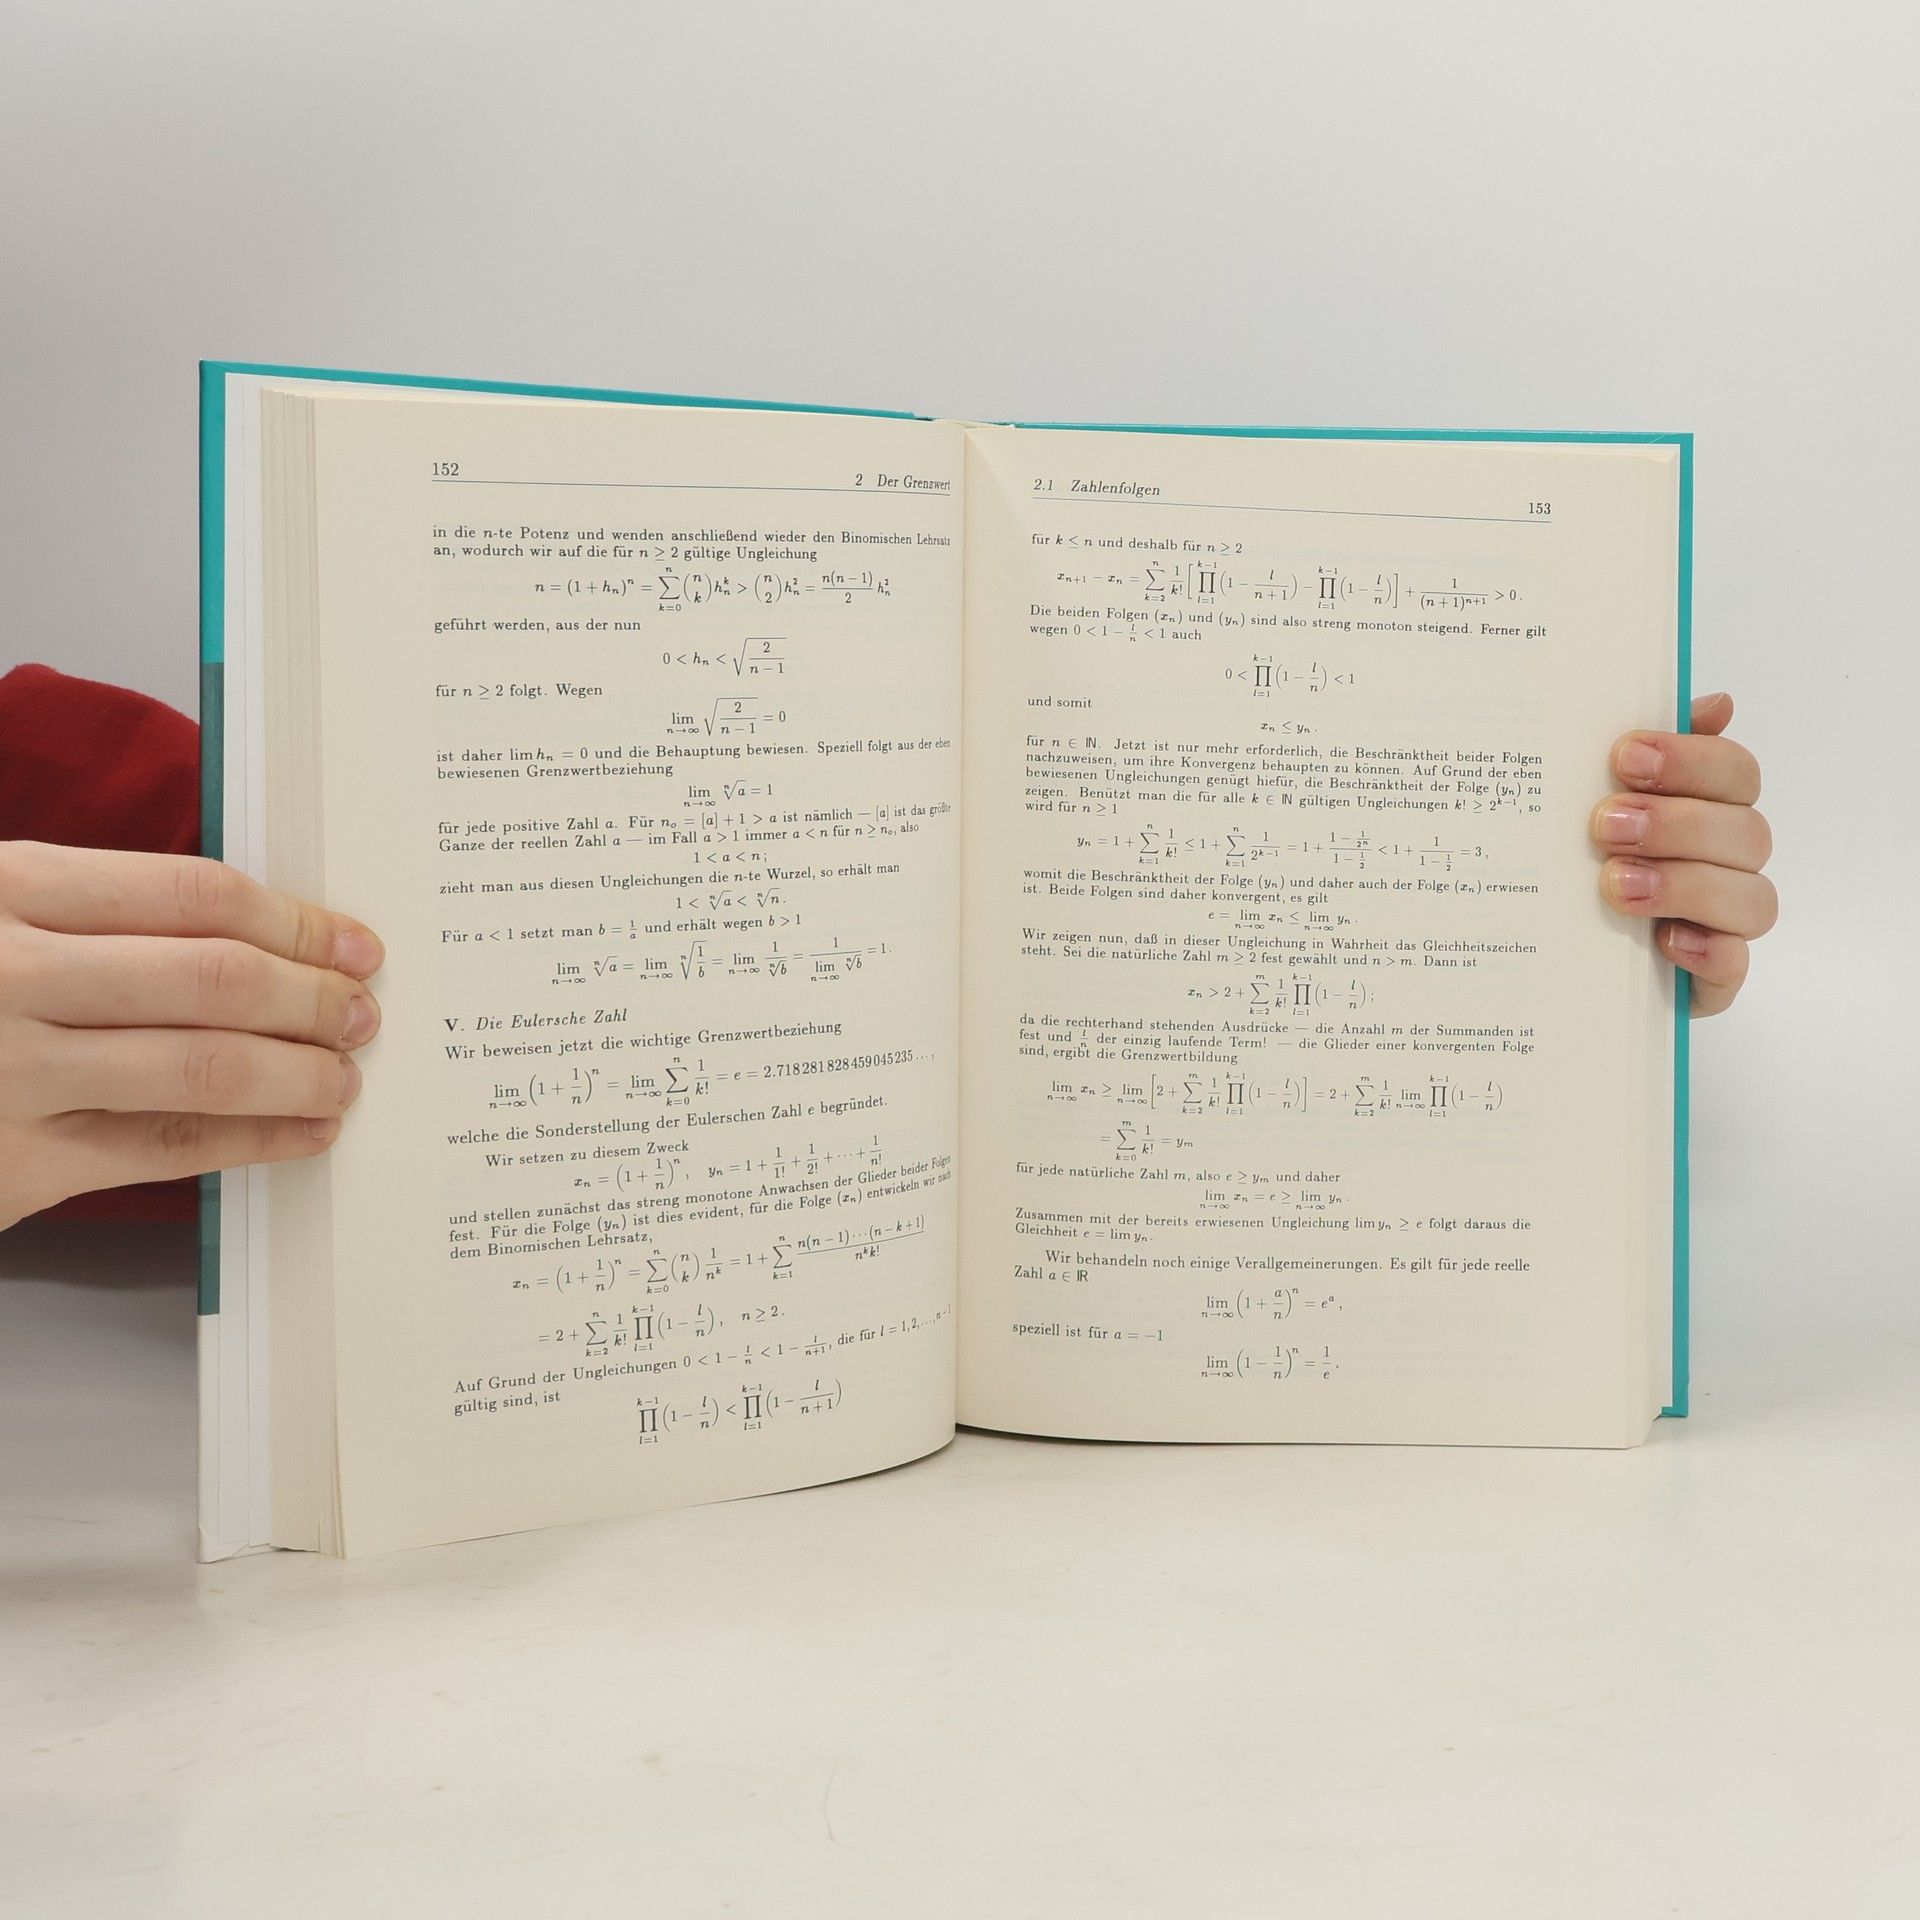 152
2 Der Grenzwert
in die n-te Potenz und wenden anschließend wieder den Binomischen Lehrsatz
an, wodurch wir auf die für n ≥ 2 gültige Ungleichung
n = (1 + hₙ)ⁿ = ∑_{k=0}^{n} (n über k) hₙᵏ > (n über 2) hₙ² = n(n−1)/2 hₙ²
geführt werden, aus der nun
0 < hₙ < √(2/(n−1))
für n ≥ 2 folgt. Wegen
lim_{n→∞} √(2/(n−1)) = 0
ist daher lim hₙ = 0 und die Behauptung bewiesen. Speziell folgt aus der eben
bewiesenen Grenzwertbeziehung
lim_{n→∞} ⁿ√a = 1
für jede positive Zahl a. Für nₒ = [a] + 1 > a ist nämlich — [a] ist das größte
Ganze der reellen Zahl a — im Fall a > 1 immer a < n für n ≥ nₒ, also
1 < a < n;
zieht man aus diesen Ungleichungen die n-te Wurzel, so erhält man
1 < ⁿ√a < ⁿ√n.
Für a < 1 setzt man b = 1/a und erhält wegen b > 1
lim_{n→∞} ⁿ√a = lim_{n→∞} ⁿ√(1/b) = lim_{n→∞} 1/ⁿ√b = 1/(lim_{n→∞} ⁿ√b) = 1.
V. Die Eulersche Zahl
Wir beweisen jetzt die wichtige Grenzwertbeziehung
lim_{n→∞} (1 + 1/n)ⁿ = lim_{n→∞} ∑_{k=0}^{n} 1/k! = e = 2.718281828459045235...,
welche die Sonderstellung der Eulerschen Zahl e begründet.
Wir setzen zu diesem Zweck
xₙ = (1 + 1/n)ⁿ, yₙ = 1 + 1/1! + 1/2! + ··· + 1/n!
und stellen zunächst das streng monotone Anwachsen der Glieder beider Folgen
fest. Für die Folge (yₙ) ist dies evident, für die Folge (xₙ) entwickeln wir nach
dem Binomischen Lehrsatz,
xₙ = (1 + 1/n)ⁿ = ∑_{k=0}^{n} (n über k) 1/nᵏ = 1 + ∑_{k=1}^{n} n(n−1)···(n−k+1)/(nᵏk!)
= 2 + ∑_{k=2}^{n} 1/k! ∏_{l=1}^{k−1} (1 − l/n), n ≥ 2.
Auf Grund der Ungleichungen 0 < 1 − l/n < 1 − l/(n+1), die für l = 1,2,...,n−1
gültig sind, ist
∏_{l=1}^{k−1} (1 − l/n) < ∏_{l=1}^{k−1} (1 − l/(n+1))
2.1 Zahlenfolgen
153
für k ≤ n und deshalb für n ≥ 2
xₙ₊₁ − xₙ = ∑_{k=2}^{n} 1/k! [∏_{l=1}^{k−1} (1 − l/(n+1)) − ∏_{l=1}^{k−1} (1 − l/n)] + 1/(n+1)ⁿ⁺¹ > 0.
Die beiden Folgen (xₙ) und (yₙ) sind also streng monoton steigend. Ferner gilt
wegen 0 < 1 − l/n < 1 auch
0 < ∏_{l=1}^{k−1} (1 − l/n) < 1
und somit
xₙ ≤ yₙ.
für n ∈ ℕ. Jetzt ist nur mehr erforderlich, die Beschränktheit beider Folgen
nachzuweisen, um ihre Konvergenz behaupten zu können. Auf Grund der eben
bewiesenen Ungleichungen genügt hiefür, die Beschränktheit der Folge (yₙ) zu
zeigen. Benützt man die für alle k ∈ ℕ gültigen Ungleichungen k! ≥ 2ᵏ⁻¹, so
wird für n ≥ 1
yₙ = 1 + ∑_{k=1}^{n} 1/k! ≤ 1 + ∑_{k=1}^{n} 1/2ᵏ⁻¹ = 1 + (1 − 1/2ⁿ)/(1 − 1/2) < 1 + 1/(1 − 1/2) = 3,
womit die Beschränktheit der Folge (yₙ) und daher auch der Folge (xₙ) erwiesen
ist. Beide Folgen sind daher konvergent, es gilt
e = lim_{n→∞} xₙ ≤ lim_{n→∞} yₙ.
Wir zeigen nun, daß in dieser Ungleichung in Wahrheit das Gleichheitszeichen
steht. Sei die natürliche Zahl m ≥ 2 fest gewählt und n > m. Dann ist
xₙ > 2 + ∑_{k=2}^{m} 1/k! ∏_{l=1}^{k−1} (1 − l/n);
da die rechterhand stehenden Ausdrücke — die Anzahl m der Summanden ist
fest und l/n der einzig laufende Term! — die Glieder einer konvergenten Folge
sind, ergibt die Grenzwertbildung
lim_{n→∞} xₙ ≥ lim_{n→∞} [2 + ∑_{k=2}^{m} 1/k! ∏_{l=1}^{k−1} (1 − l/n)] = 2 + ∑_{k=2}^{m} 1/k! lim_{n→∞} ∏_{l=1}^{k−1} (1 − l/n)
= ∑_{k=0}^{m} 1/k! = yₘ
für jede natürliche Zahl m, also e ≥ yₘ und daher
lim_{n→∞} xₙ = e ≥ lim_{n→∞} yₙ.
Zusammen mit der bereits erwiesenen Ungleichung lim yₙ ≥ e folgt daraus die
Gleichheit e = lim yₙ.
Wir behandeln noch einige Verallgemeinerungen. Es gilt für jede reelle
Zahl a ∈ ℝ
lim_{n→∞} (1 + a/n)ⁿ = eᵃ,
speziell ist für a = −1
lim_{n→∞} (1 − 1/n)ⁿ = 1/e.